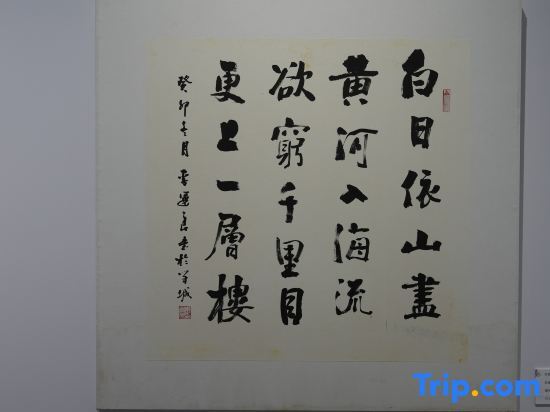 白日依山盡
黄河入海流
欲窮千里目
更上一層樓
癸卯冬月 李運良書於羊城
Trip.com